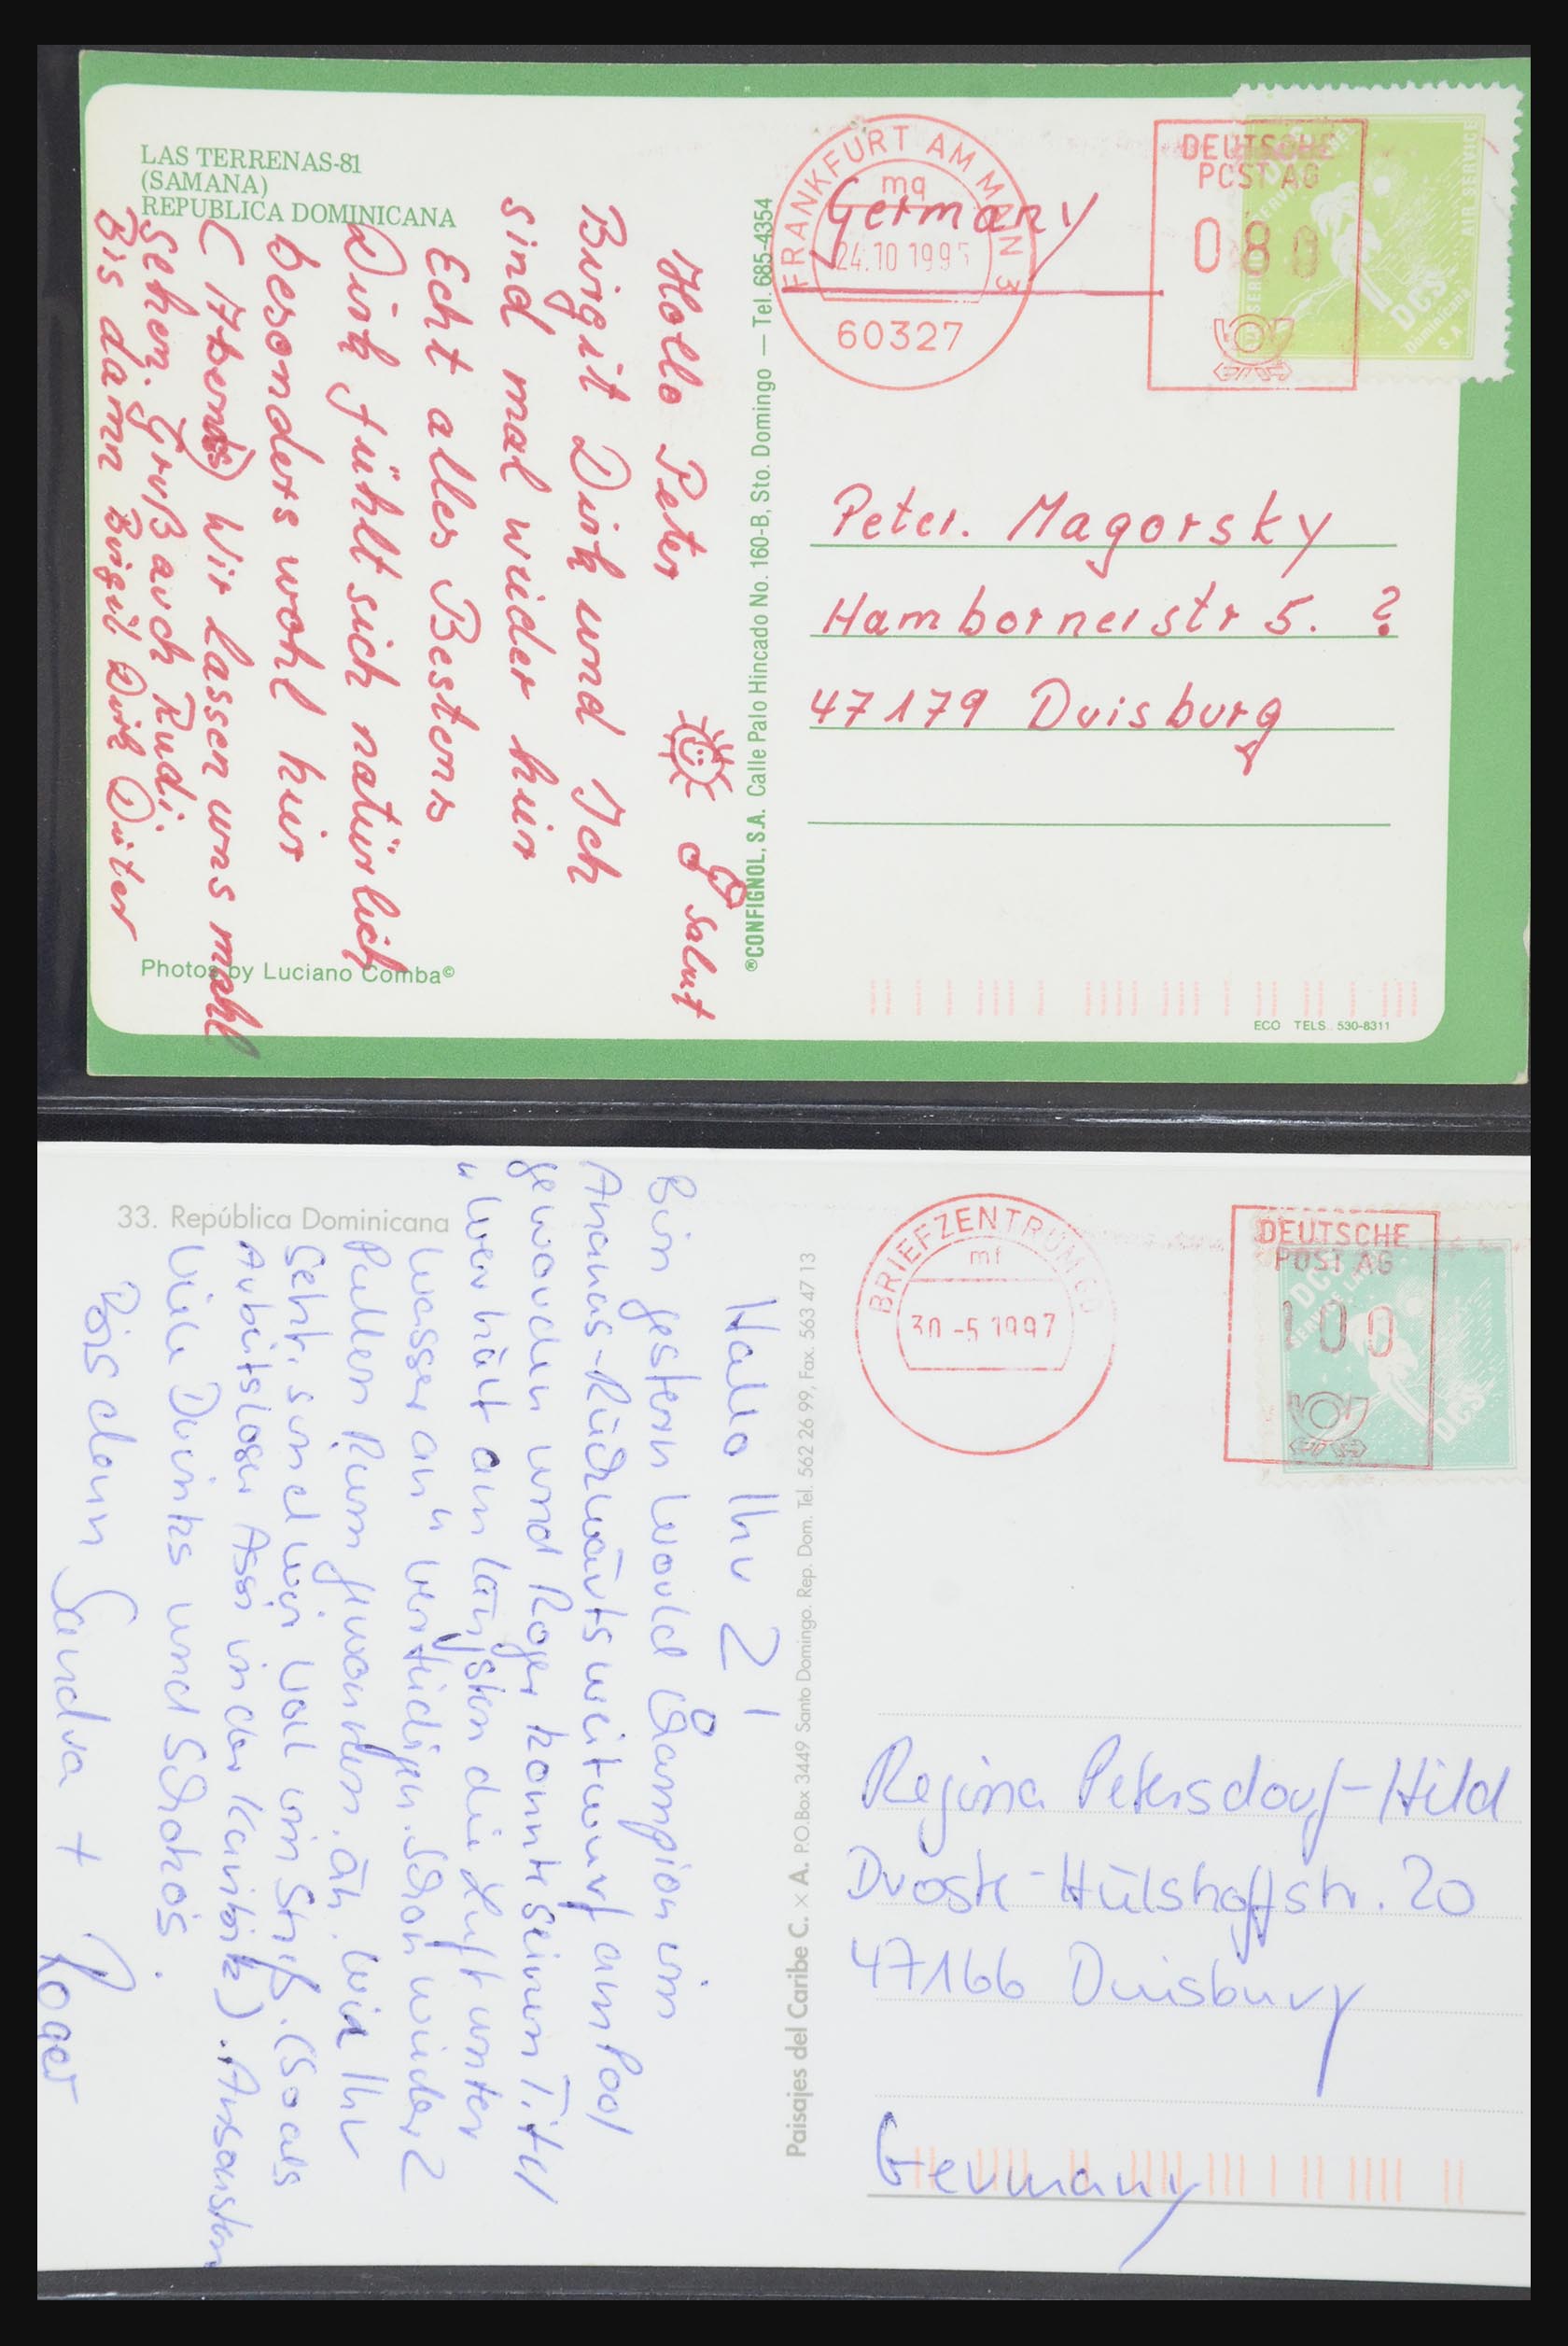 LAS TERRENAS-81
(SAMANA)
REPUBLICA DOMINICANA
Hallo Peter
Salut
Birgit Dirk und Ich
sind mal wieder hier
Echt alles Bestens
Dirk fühlt sich natürlich
besonders wohl hier
(Abends) Wir lassen uns mahl
sehen. Gruß auch Rudi.
Bis dann Birgit Dirk Dieter
Photos by Luciano Comba©
®CONFIGNOL, S.A. Calle Palo Hincado No. 160-B, Sto. Domingo — Tel. 685-4354
FRANKFURT AM MAIN 3
mq
24.10 1995
60327
Germany
DEUTSCHE
POST AG
080
AIR SERVICE
DCS
Dominicana
S.A
Peter. Magorsky
Hambornerstr 5. ?
47179 Duisburg
ECO TELS. 530-8311
33. República Dominicana
Hallo Ihr 2!
Bin gestern World Champion im
Ananas-Rückwärtsweitwurf am Pool
geworden und Roger konnte seinen Titel
"Wer hält am längsten die Luft unter
Wasser an" verteidigen. Schon wieder 2
Pullen Rum gewonnen. Äh. Wie Ihr
seht, sind wir voll im Streß. (So als
Arbeitsloser Assi in der Karibik). Ansonsten
Viele Drinks und Schokos
Bis dann Sandra + Roger
Paisajes del Caribe C. x A. P.O.Box 3449 Santo Domingo. Rep. Dom. Tel. 562 26 99, Fax. 563 47 13
BRIEFZENTRUM 60
mf
30 -5 1997
DEUTSCHE
POST AG
100
DCS
DCS
Regina Petersdorf-Hild
Droste-Hülshoffstr. 20
47166 Duisburg
Germany